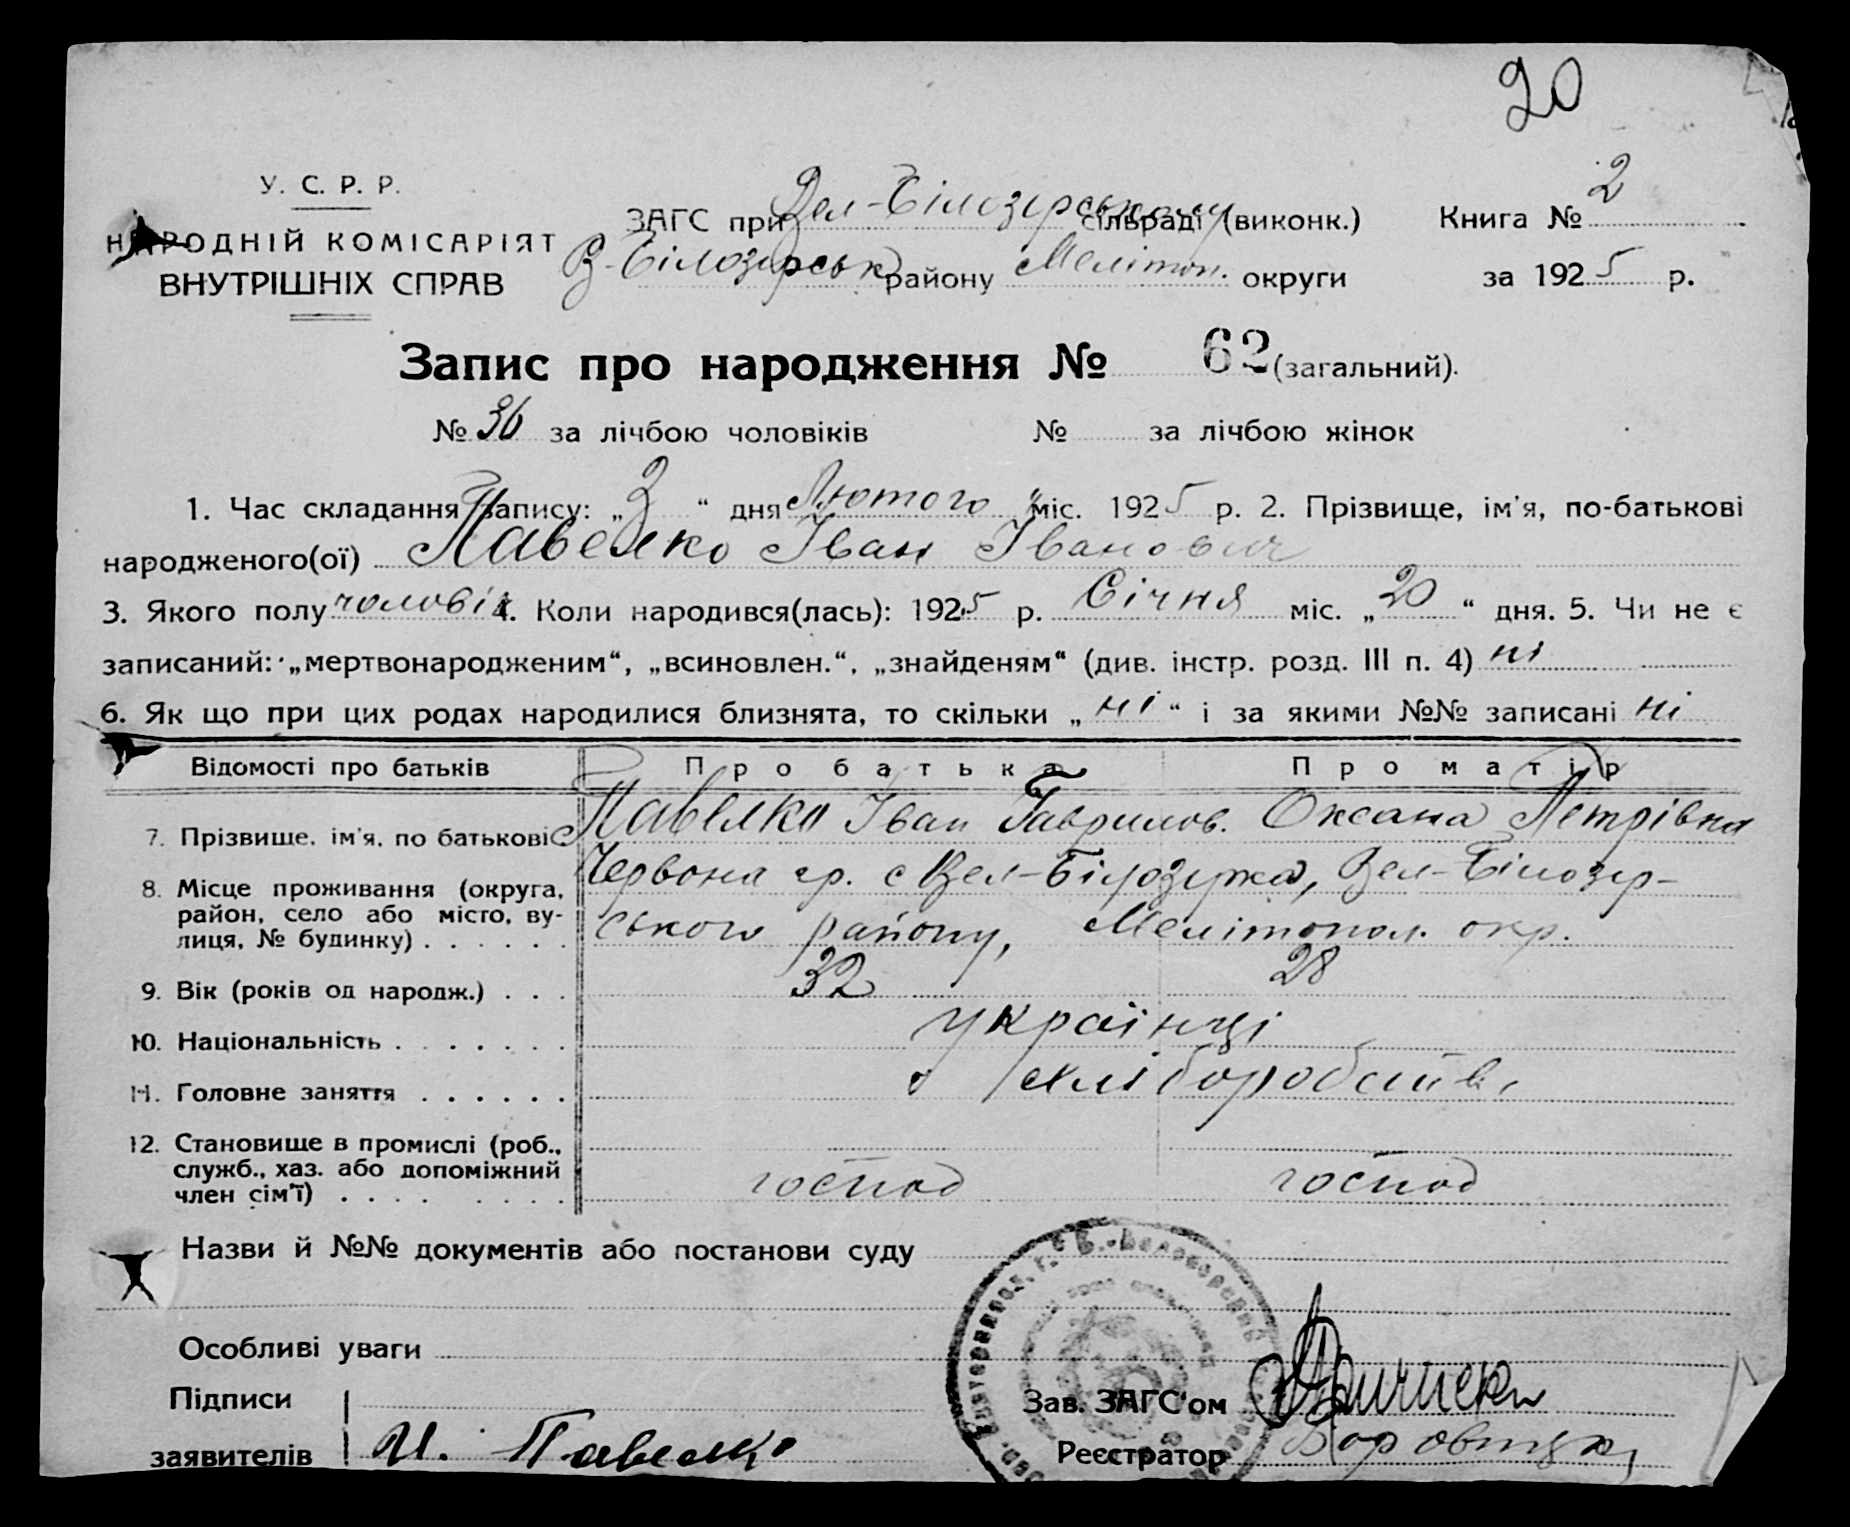 20
У. С. Р. Р.
НАРОДНІЙ КОМІСАРІЯТ
ВНУТРІШНІХ СПРАВ
ЗАГС при Вел-Білозерському сільраді (виконк.) Книга № 2
В-Білозерськ району Мелітоп. округи за 1925 р.
Запис про народження № 62 (загальний).
№ 36 за лічбою чоловіків № за лічбою жінок
1. Час складання запису: „3“ дня Лютого міс. 1925 р. 2. Прізвище, ім'я, по-батькові
народженого(ої) Павелко Іван Іванович
3. Якого полу чоловік 4. Коли народився(лась): 1925 р. Січня міс. „20“ дня. 5. Чи не є
записаний: „мертвонародженим“, „всиновлен.“, „знайденям“ (див. інстр. розд. III п. 4) ні
6. Як що при цих родах народилися близнята, то скільки „ні“ і за якими №№ записані ні
Відомості про батьків Про батька Про матір
7. Прізвище, ім'я, по батькові Павелко Іван Гаврилов. Оксана Петрівна
8. Місце проживання (округа, Червона гр. с Вел-Білозерка, Вел-Білозер-
район, село або місто, ву- ського району, Мелітопол. окр.
лиця, № будинку) . . . . . .
9. Вік (років од народж.) . . . 32 28
10. Національність . . . . . . . українці
11. Головне заняття . . . . . . хліборобств
12. Становище в промислі (роб.,
служб., хаз. або допоміжний господ господ
член сім'ї) . . . . . . . .
Назви й №№ документів або постанови суду
Особливі уваги
Підписи Зав. ЗАГС'ом
заявителів И. Павелко Реєстратор